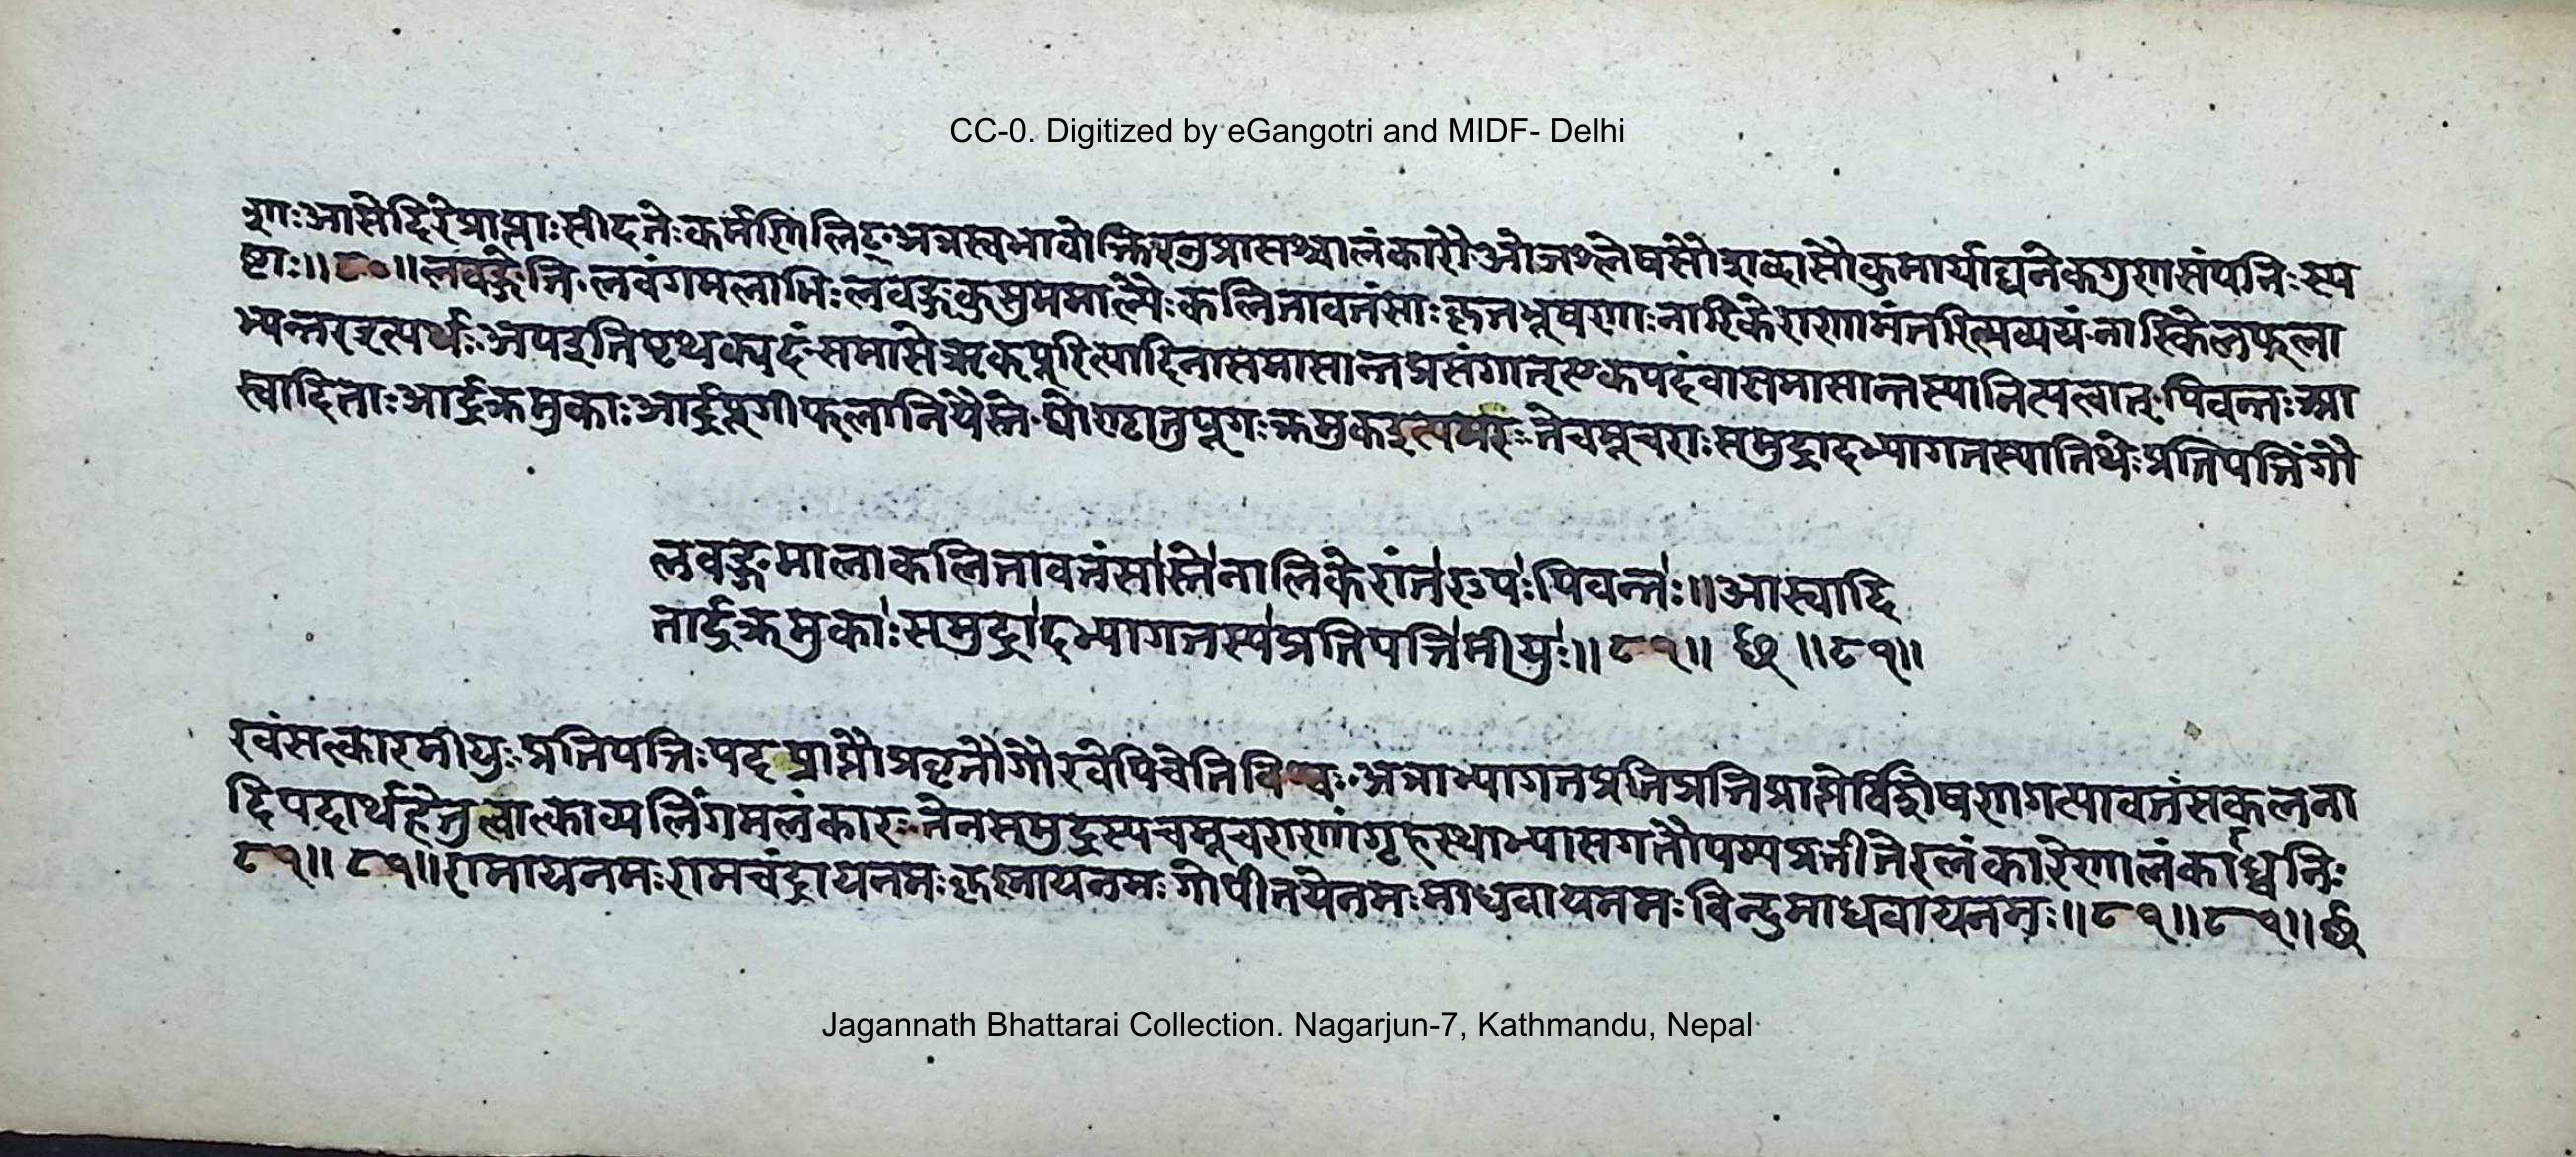 CC-0. Digitized by eGangotri and MIDF- Delhi
शाः आसेदिरे प्राप्ताः सीदतेः कर्मणि लिट् अत्र स्वभावोक्तिरनुप्रासश्चालंकारौ ओजश्लेषसौशब्द्यसौकुमार्याद्यनेकगुणसंपत्तिः स्प
ष्टाः ॥ ८० ॥ लवङ्गेति लवंगमलाभिः लवङ्गकुसुममाल्यैः कलितावतंसाः कृतभूषणाः नारिकेराणामंतरित्यव्ययं नारिकेलफला
भ्यन्तरइत्यर्थः अपइति पृथक्पदं समासे ऋक्पूरित्यादिना समासान्तप्रसंगात् एकपदं वा समासान्तस्यानित्यत्वात् पिवन्तः आ
स्वादिताः आर्द्रक्रमुकाः आर्द्रपूगीफलानि यैस्ते घोण्टातु पूगः क्रमुकइत्यमरः ते चमूचराः समुद्रादभ्यागतस्यातिथेः प्रतिपत्तिं गौ
लवङ्गमालाकलितावतंसास्ते नालिकेरांतरपः पिवन्तः ॥ आस्वादि
तार्द्रक्रमुकाः समुद्रादभ्यागतस्य प्रतिपत्तिमीयुः ॥ ८१ ॥ छ ॥ ८१ ॥
रवं सत्कारमीयुः प्रतिपत्तिः पदप्राप्तौ प्रवृत्तौ गौरवेपि चेति विश्वः अत्राभ्यागतप्रतिप्रत्तिप्राप्तेर्विशेषणगत्यावतंसकलना
दिपदार्थहेतुत्वात्काव्यलिंगमलंकारः तेन समुद्रस्य चमूचराणां गृहस्थाभ्यासगतौपम्यप्रतीतेरलंकारेणालंकार्ध्वनिः
८१ ॥ ८१ ॥ रामाय नमः रामचंद्राय नमः कृष्णाय नमः गोपीतयेनमः माधवाय नमः विन्दुमाधवाय नमः ॥ ८१ ॥ ८१ ॥ छ
Jagannath Bhattarai Collection. Nagarjun-7, Kathmandu, Nepal